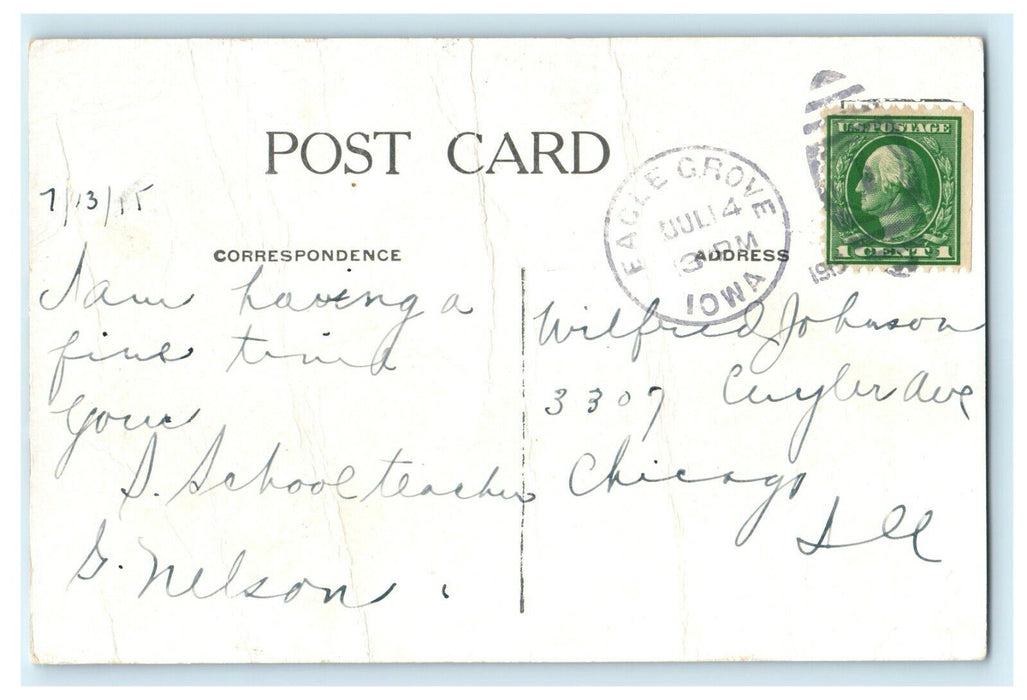 POST CARD
7/13/15
CORRESPONDENCE
I am having a
fine time
your
S. School teacher
G. Nelson.
EAGLE GROVE
JUL 14
3 PM
IOWA
191
U.S. POSTAGE
1 CENT 1
ADDRESS
Wilfred Johnson
3307 Cuyler Ave
Chicago
Ill